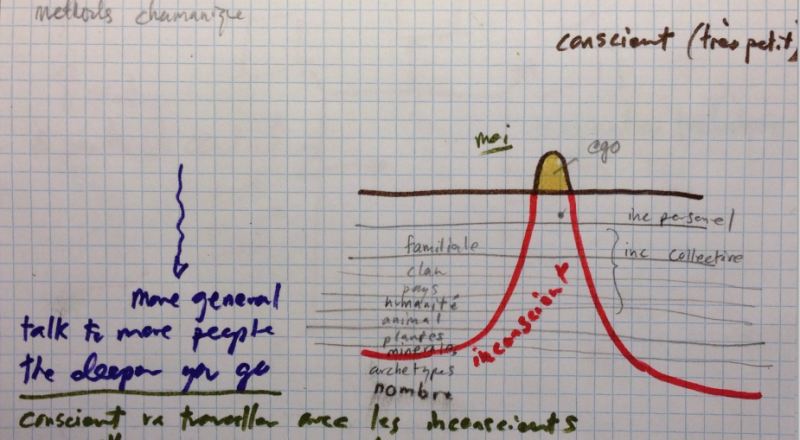 methods chamanique
conscient (très petit)
moi
ego
inc personel
inc collective
familiale
clan
pays
humanité
animal
plantes
minerales
archetypes
nombre
inconscient
more general
talk to more people
the deeper you go
conscient va travailler avec les inconscients